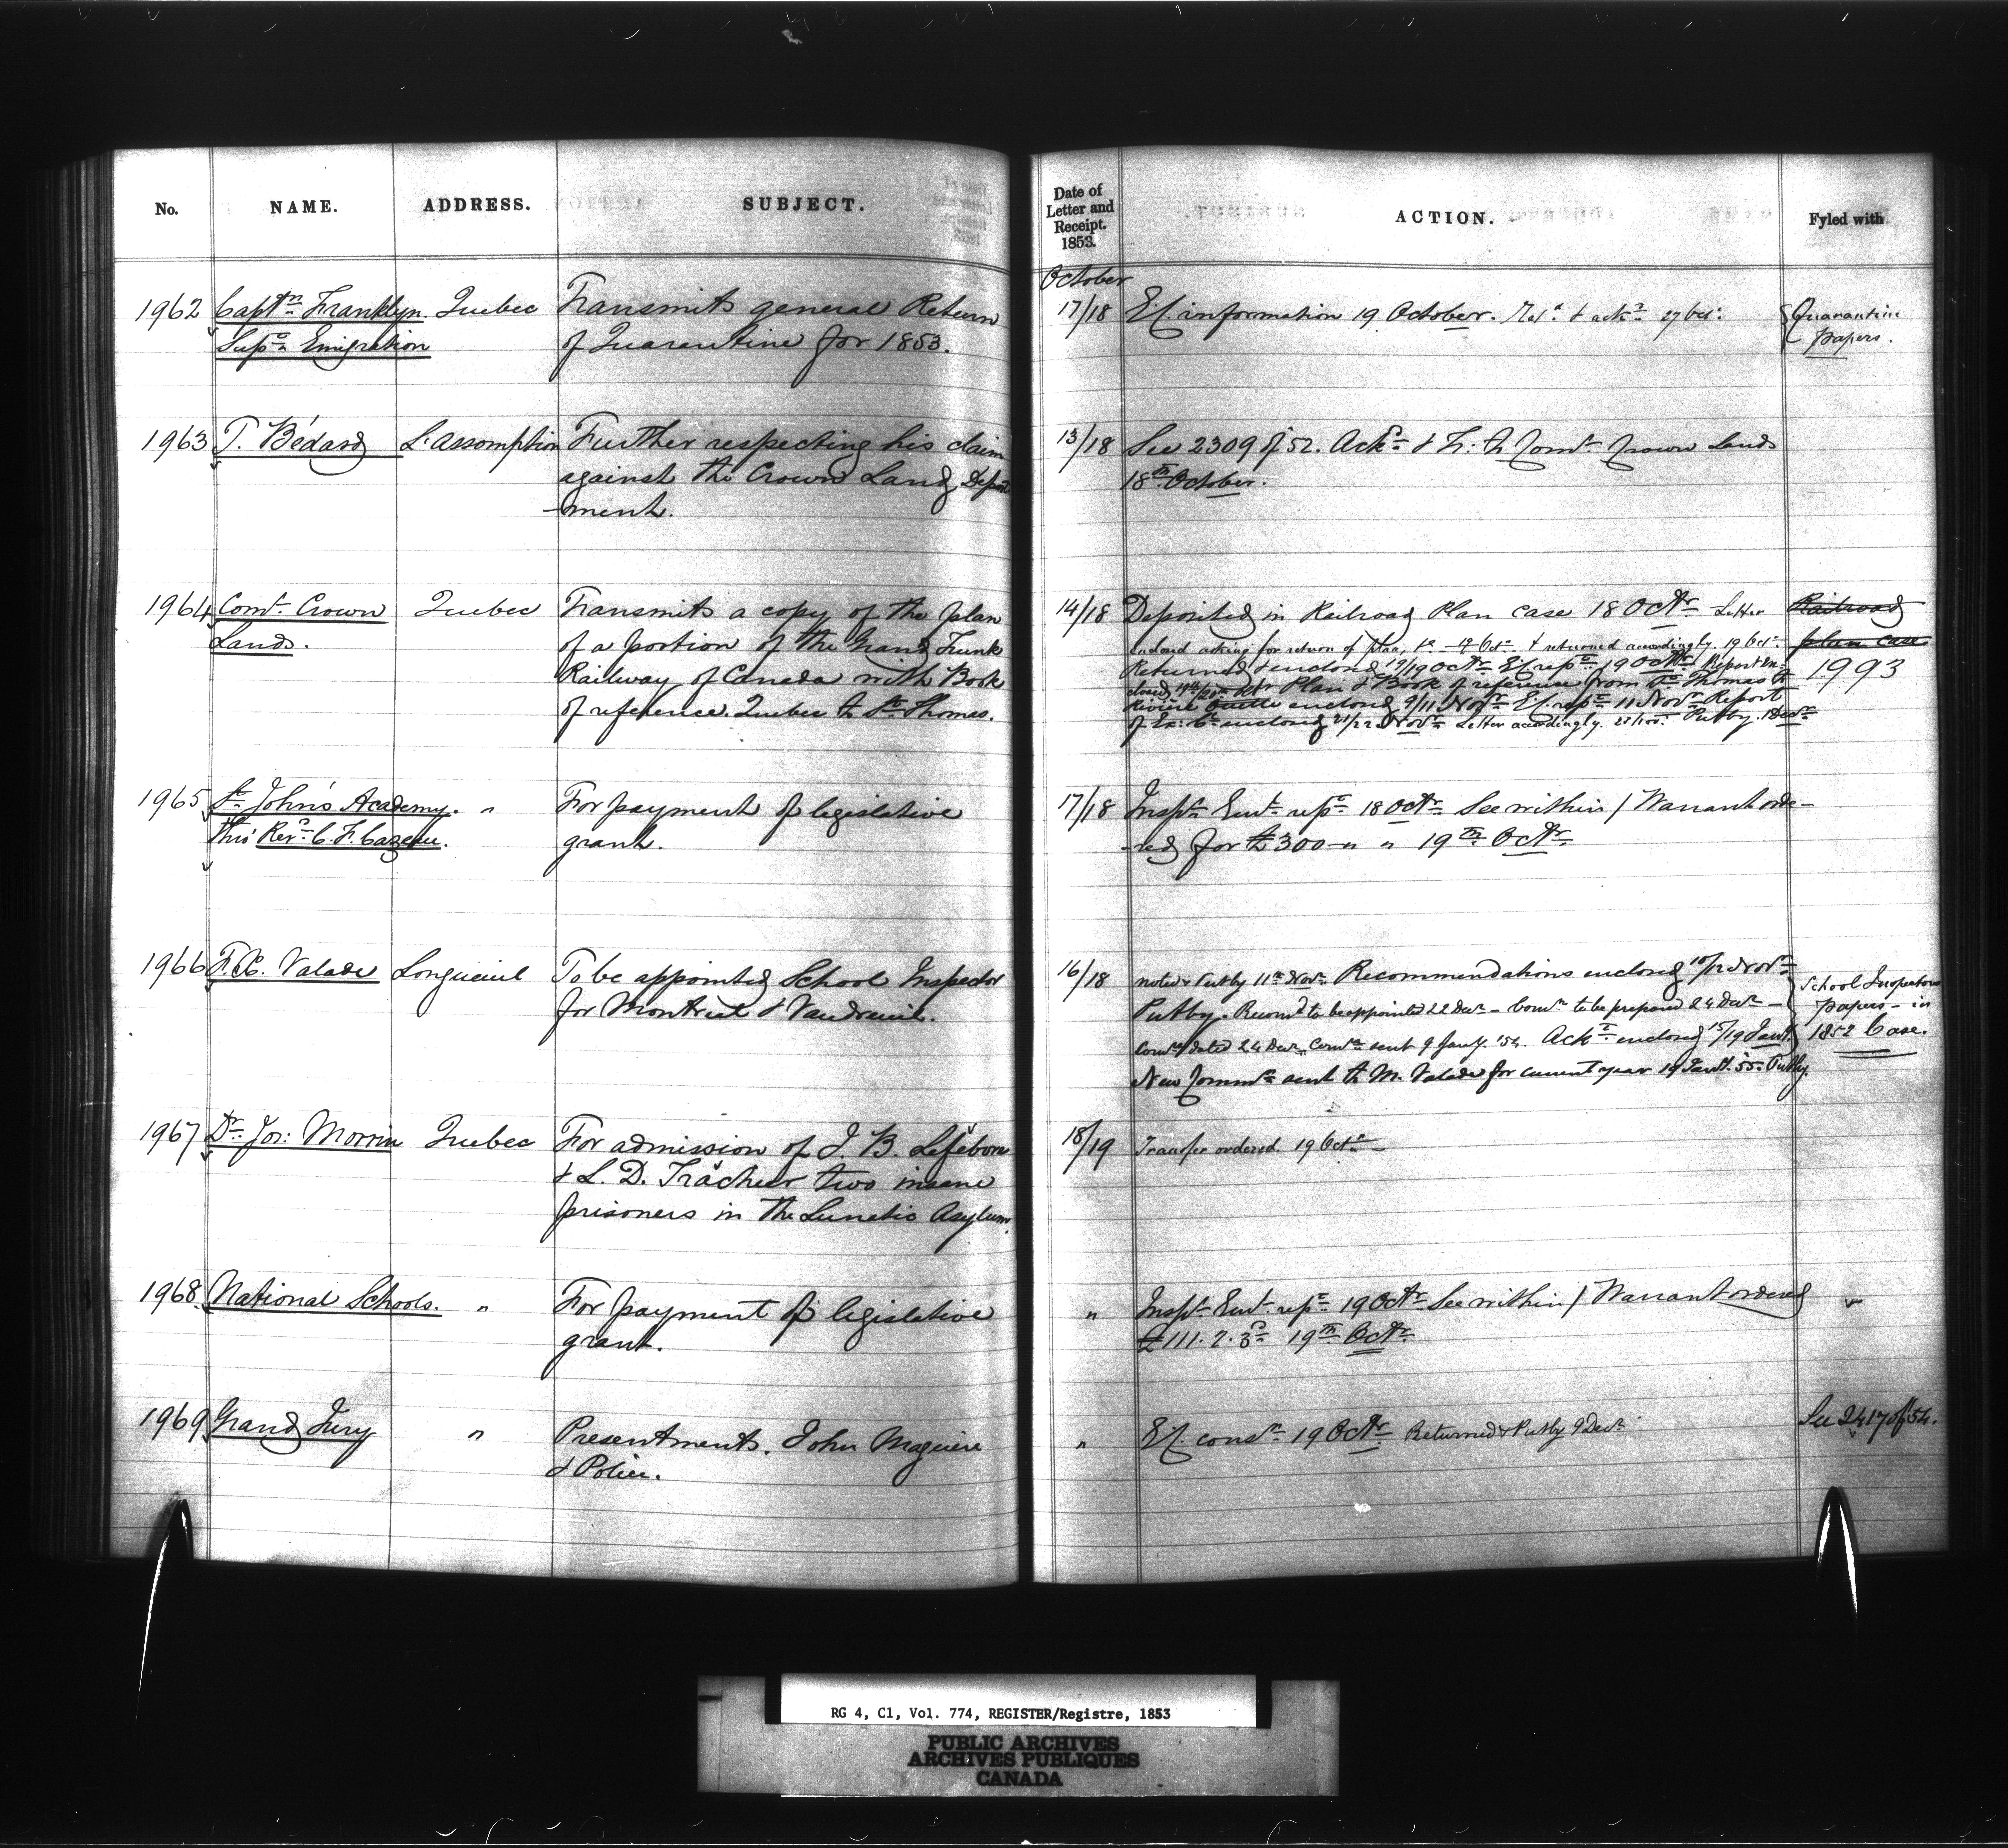 No.
NAME.
ADDRESS.
SUBJECT.
Date of
Letter and
Receipt.
1853.
ACTION.
Fyled with
October
1962 Captn Franklyn. Quebec Transmits general Return 17/18 Ex. information 19 October. 27 Oct. Quarantine
Supt Emigration of Quarantine for 1853. Papers.
1963 T. Bédard L'assomption Further respecting his claim 13/18 See 2309 of 52. Ackd & Tr: to Comr Crown Lands
against the Crown Land Depart 18th October.
-ment.
1964 Comr Crown Quebec Transmits a copy of the plan 14/18 Deposited in Railroad Plan case 18 Octr Letter Railroad
Lands. of a portion of the Grand Trunk enclosed asking for return of plan, & returned accordingly. 19 Oct. plan case
Railway of Canada with Book Returned & enclosed 19/19 Octr Ex. repd 19 Octr Report en- 1993
of reference. Quebec to St Thomas. closed Plan & Book of reference from St Thomas to
Rivière Ouelle enclosed 9/11 Novr Ex. repd 11 Novr Report
of Ex: Cl enclosed 21/22 Novr Letter accordingly. Putby. 1 Decr
1965 St John's Academy. " For payment of legislative 17/18 Inspr Genl repd 18 Octr See within / Warrant orde-
thro' Revd C. F. Cazeau. grant. -red for £300 " " 19th Octr
1966 F. X. Valade Longueuil To be appointed School Inspector 16/18 noted & Putby 11th Novr Recommendations enclosed 10/12 Novr School Inspectors
for Montreal & Vaudreuil. Putby. Recomd to be appointed 22 Decr - Comn to be prepared 24 Decr - papers - in
Comn dated 24 Decr, Comn sent 9 Jany. '54. Ackt enclosed 15/19 Jany. 1852 Case.
New Commn sent to M. Valade for current year 19 Jany. 55. Putby.
1967 Dr Jos: Morrin Quebec For admission of J. B. Lefebvre 18/19 Transfer ordered. 19 Octr
& L. D. Trächer two insane
prisoners in the Lunatic Asylum.
1968 National Schools. " For payment of legislative " Inspr Genl. repd 19 Octr See within / Warrant ordered "
grant. £111. 2. 3d 19th Octr
1969 Grand Jury " Presentments. John Maguire " Ex. consn 19 Octr Returned & Putby 9 Decr See 2417 of 54.
& Police.
RG 4, C1, Vol. 774, REGISTER/Registre, 1853
PUBLIC ARCHIVES
ARCHIVES PUBLIQUES
CANADA